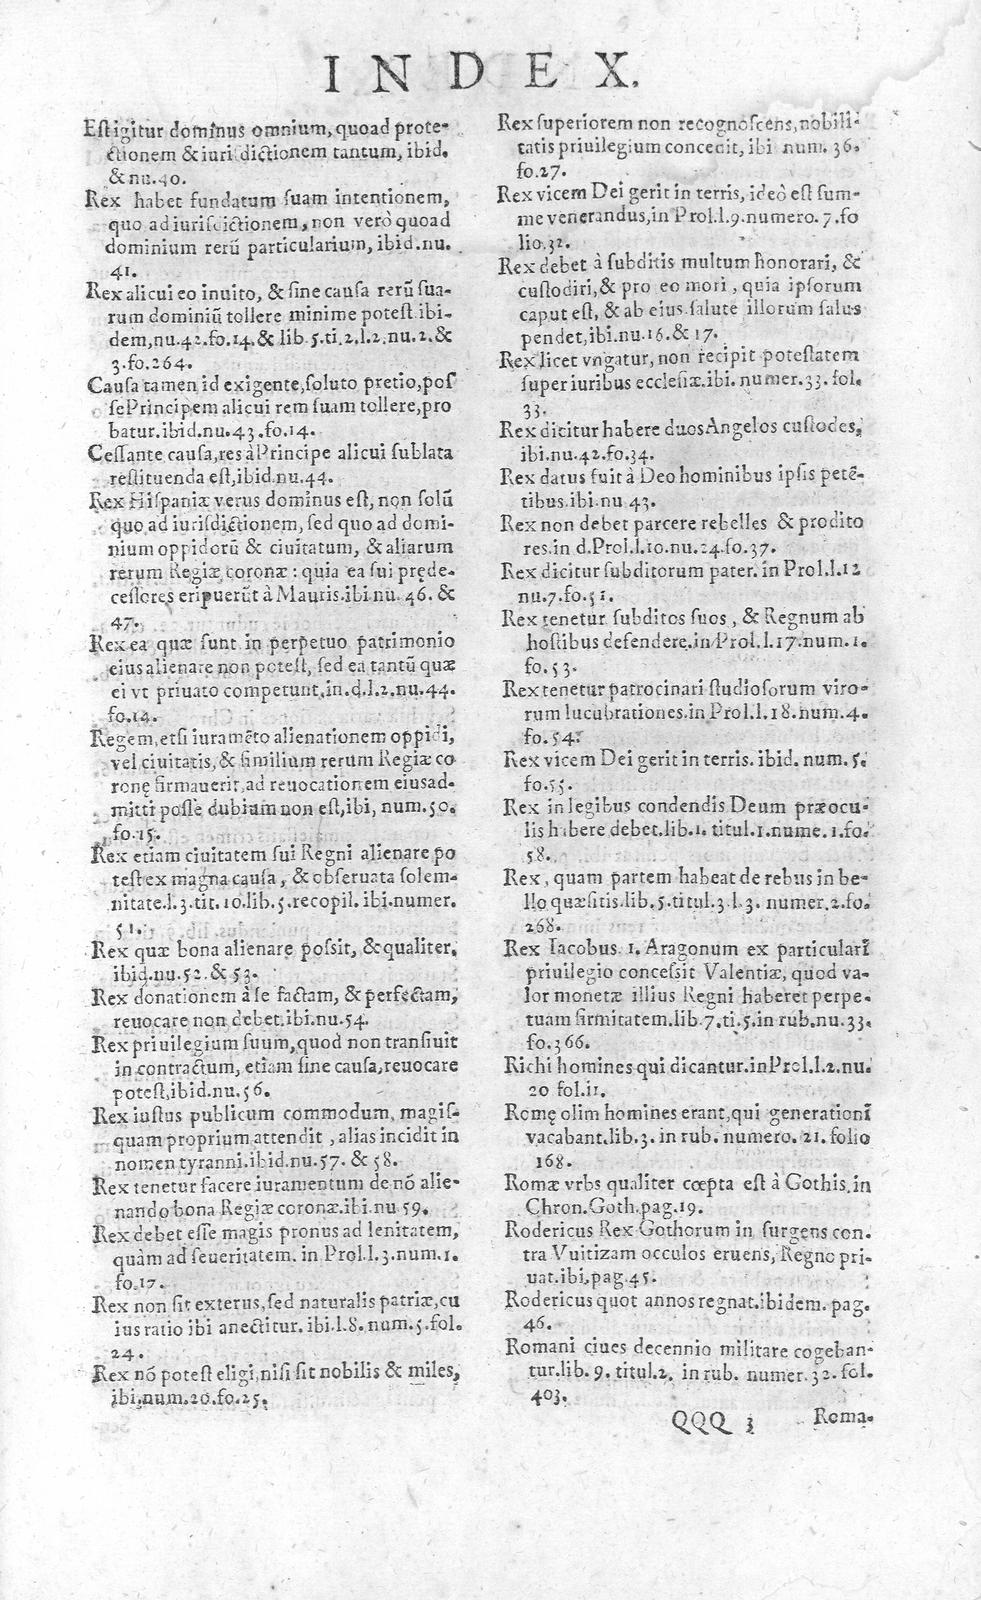 INDEX.
Est igitur dominus omnium, quoad prote-
ctionem & iurisdictionem tantum, ibid.
& nu.40.
Rex habet fundatum suam intentionem,
quo ad iurisdictionem, non verò quoad
dominium rerũ particularium, ibid.nu.
41.
Rex alicui eo inuito, & sine causa rerũ sua-
rum dominiũ tollere minime potest.ibi-
dem,nu.42.fo.14.& lib.5.ti.2.l.2.nu.2.&
3.fo.264.
Causa tamen id exigente,soluto pretio,pos
se Principem alicui rem suam tollere,pro
batur.ibid.nu.43.fo.14.
Cessante causa,res à Principe alicui sublata
restituenda est,ibid.nu.44.
Rex Hispaniæ verus dominus est, non solũ
quo ad iurisdictionem, sed quo ad domi-
nium oppidorũ & ciuitatum, & aliarum
rerum Regiæ coronæ: quia ea sui prede-
cessores eripuerũt à Mauris.ibi.nu. 46. &
47.
Rex ea quæ sunt in perpetuo patrimonio
eius alienare non potest, sed ea tantũ quæ
ei vt priuato competunt,in.d.l.2.nu.44.
fo.14.
Regem,etsi iuramẽto alienationem oppidi,
vel ciuitatis,& similium rerum Regiæ co
ronę firmauerit,ad reuocationem eiusad-
mitti posse dubium non est,ibi, num.50.
fo.15.
Rex etiam ciuitatem sui Regni alienare po
test ex magna causa, & obseruata solem-
nitate.l.3.tit.10.lib.5.recopil.ibi.numer.
51.
Rex quæ bona alienare possit, & qualiter,
ibid.nu.52.& 53.
Rex donationem à se factam, & perfectam,
reuocare non debet.ibi.nu.54.
Rex priuilegium suum,quod non transiuit
in contractum, etiam sine causa,reuocare
potest,ibid.nu.56.
Rex iustus publicum commodum, magis-
quam proprium attendit, alias incidit in
nomen tyranni.ibid.nu.57. & 58.
Rex tenetur facere iuramentum de nõ alie-
nando bona Regiæ coronæ.ibi.nu.59.
Rex debet esse magis pronus ad lenitatem,
quàm ad seueritatem. in Prol.l.3.num.1.
fo.17.
Rex non sit exterus,sed naturalis patriæ,cu
ius ratio ibi anectitur. ibi.l.8. num.5.fol.
24.
Rex nõ potest eligi,nisi sit nobilis & miles,
ibi.num.20.fo.25.
Rex superiorem non recognoscens,nobili-
tatis priuilegium concedit, ibi num. 36.
fo.27.
Rex vicem Dei gerit in terris, ideò est sum-
me venerandus,in Prol.l.9.numero.7.fo
lio.32.
Rex debet à subditis multum honorari, &
custodiri,& pro eo mori, quia ipsorum
caput est, & ab eius salute illorum salus
pendet,ibi.nu.16.& 17.
Rex licet vngatur, non recipit potestatem
super iuribus ecclesiæ.ibi. numer.33. fol.
33.
Rex dicitur habere duos Angelos custodes,
ibi.nu.42.fo.34.
Rex datus fuit à Deo hominibus ipsis petẽ-
tibus.ibi.nu.43.
Rex non debet parcere rebelles & prodito
res.in d.Prol.l.10.nu.24.fo.37.
Rex dicitur subditorum pater. in Prol.l.12
nu.7.fo.51.
Rex tenetur subditos suos, & Regnum ab
hostibus defendere.in Prol.l.17.num.1.
fo.53.
Rex tenetur patrocinari studiosorum viro-
rum lucubrationes.in Prol.l.18.num.4.
fo.54.
Rex vicem Dei gerit in terris. ibid. num.5.
fo.55.
Rex in legibus condendis Deum præocu-
lis habere debet.lib.1. titul.1.nume.1.fo.
58.
Rex, quam partem habeat de rebus in be-
llo quæsitis.lib.5.titul.3.l.3. numer.2.fo.
268.
Rex Iacobus. 1. Aragonum ex particulari
priuilegio concessit Valentiæ, quod va-
lor monetæ illius Regni haberet perpe-
tuam firmitatem.lib.7.ti.5.in rub.nu.33.
fo.366.
Richi homines qui dicantur.in Prol.l.2.nu.
20 fol.11.
Romę olim homines erant,qui generationi
vacabant.lib.3. in rub. numero. 21. folio
168.
Romæ vrbs qualiter cœpta est à Gothis.in
Chron.Goth.pag.19.
Rodericus Rex Gothorum in surgens con-
tra Vuitizam occulos eruens, Regno pri-
uat.ibi,pag.45.
Rodericus quot annos regnat.ibidem. pag.
46.
Romani ciues decennio militare cogeban-
tur.lib. 9. titul.2. in rub. numer.32. fol.
403.
QQQ 3 Roma-